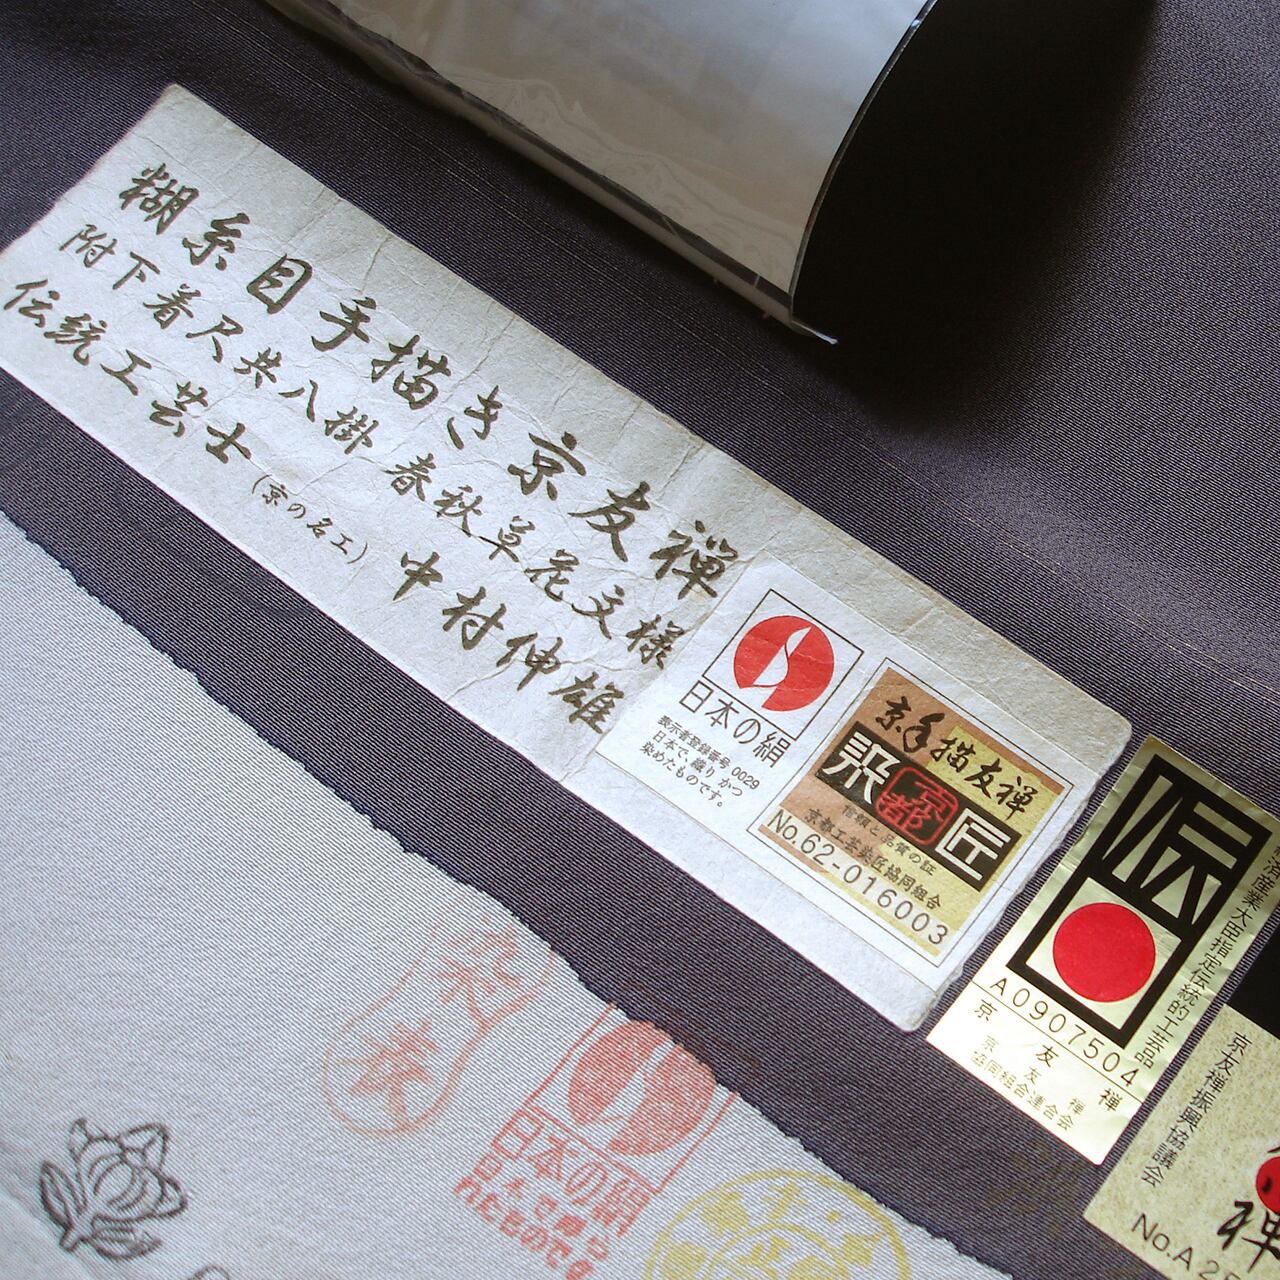 糊糸目手描き京友禅
附下着尺共八掛 春秋草花文様
伝統工芸士 (京の名工) 中村伸雄
日本の絹
表示者登録番号 0029
日本で、織り かつ
染めたものです。
京手描友禅
染 京都 匠
信頼と品質の証
京都工芸染匠協同組合
No.62-016003
伝
経済産業大臣指定伝統的工芸品
A0907504
京友禅
京友禅
協同組合連合会
京友禅振興協議会
禅
No.A2
日本の絹